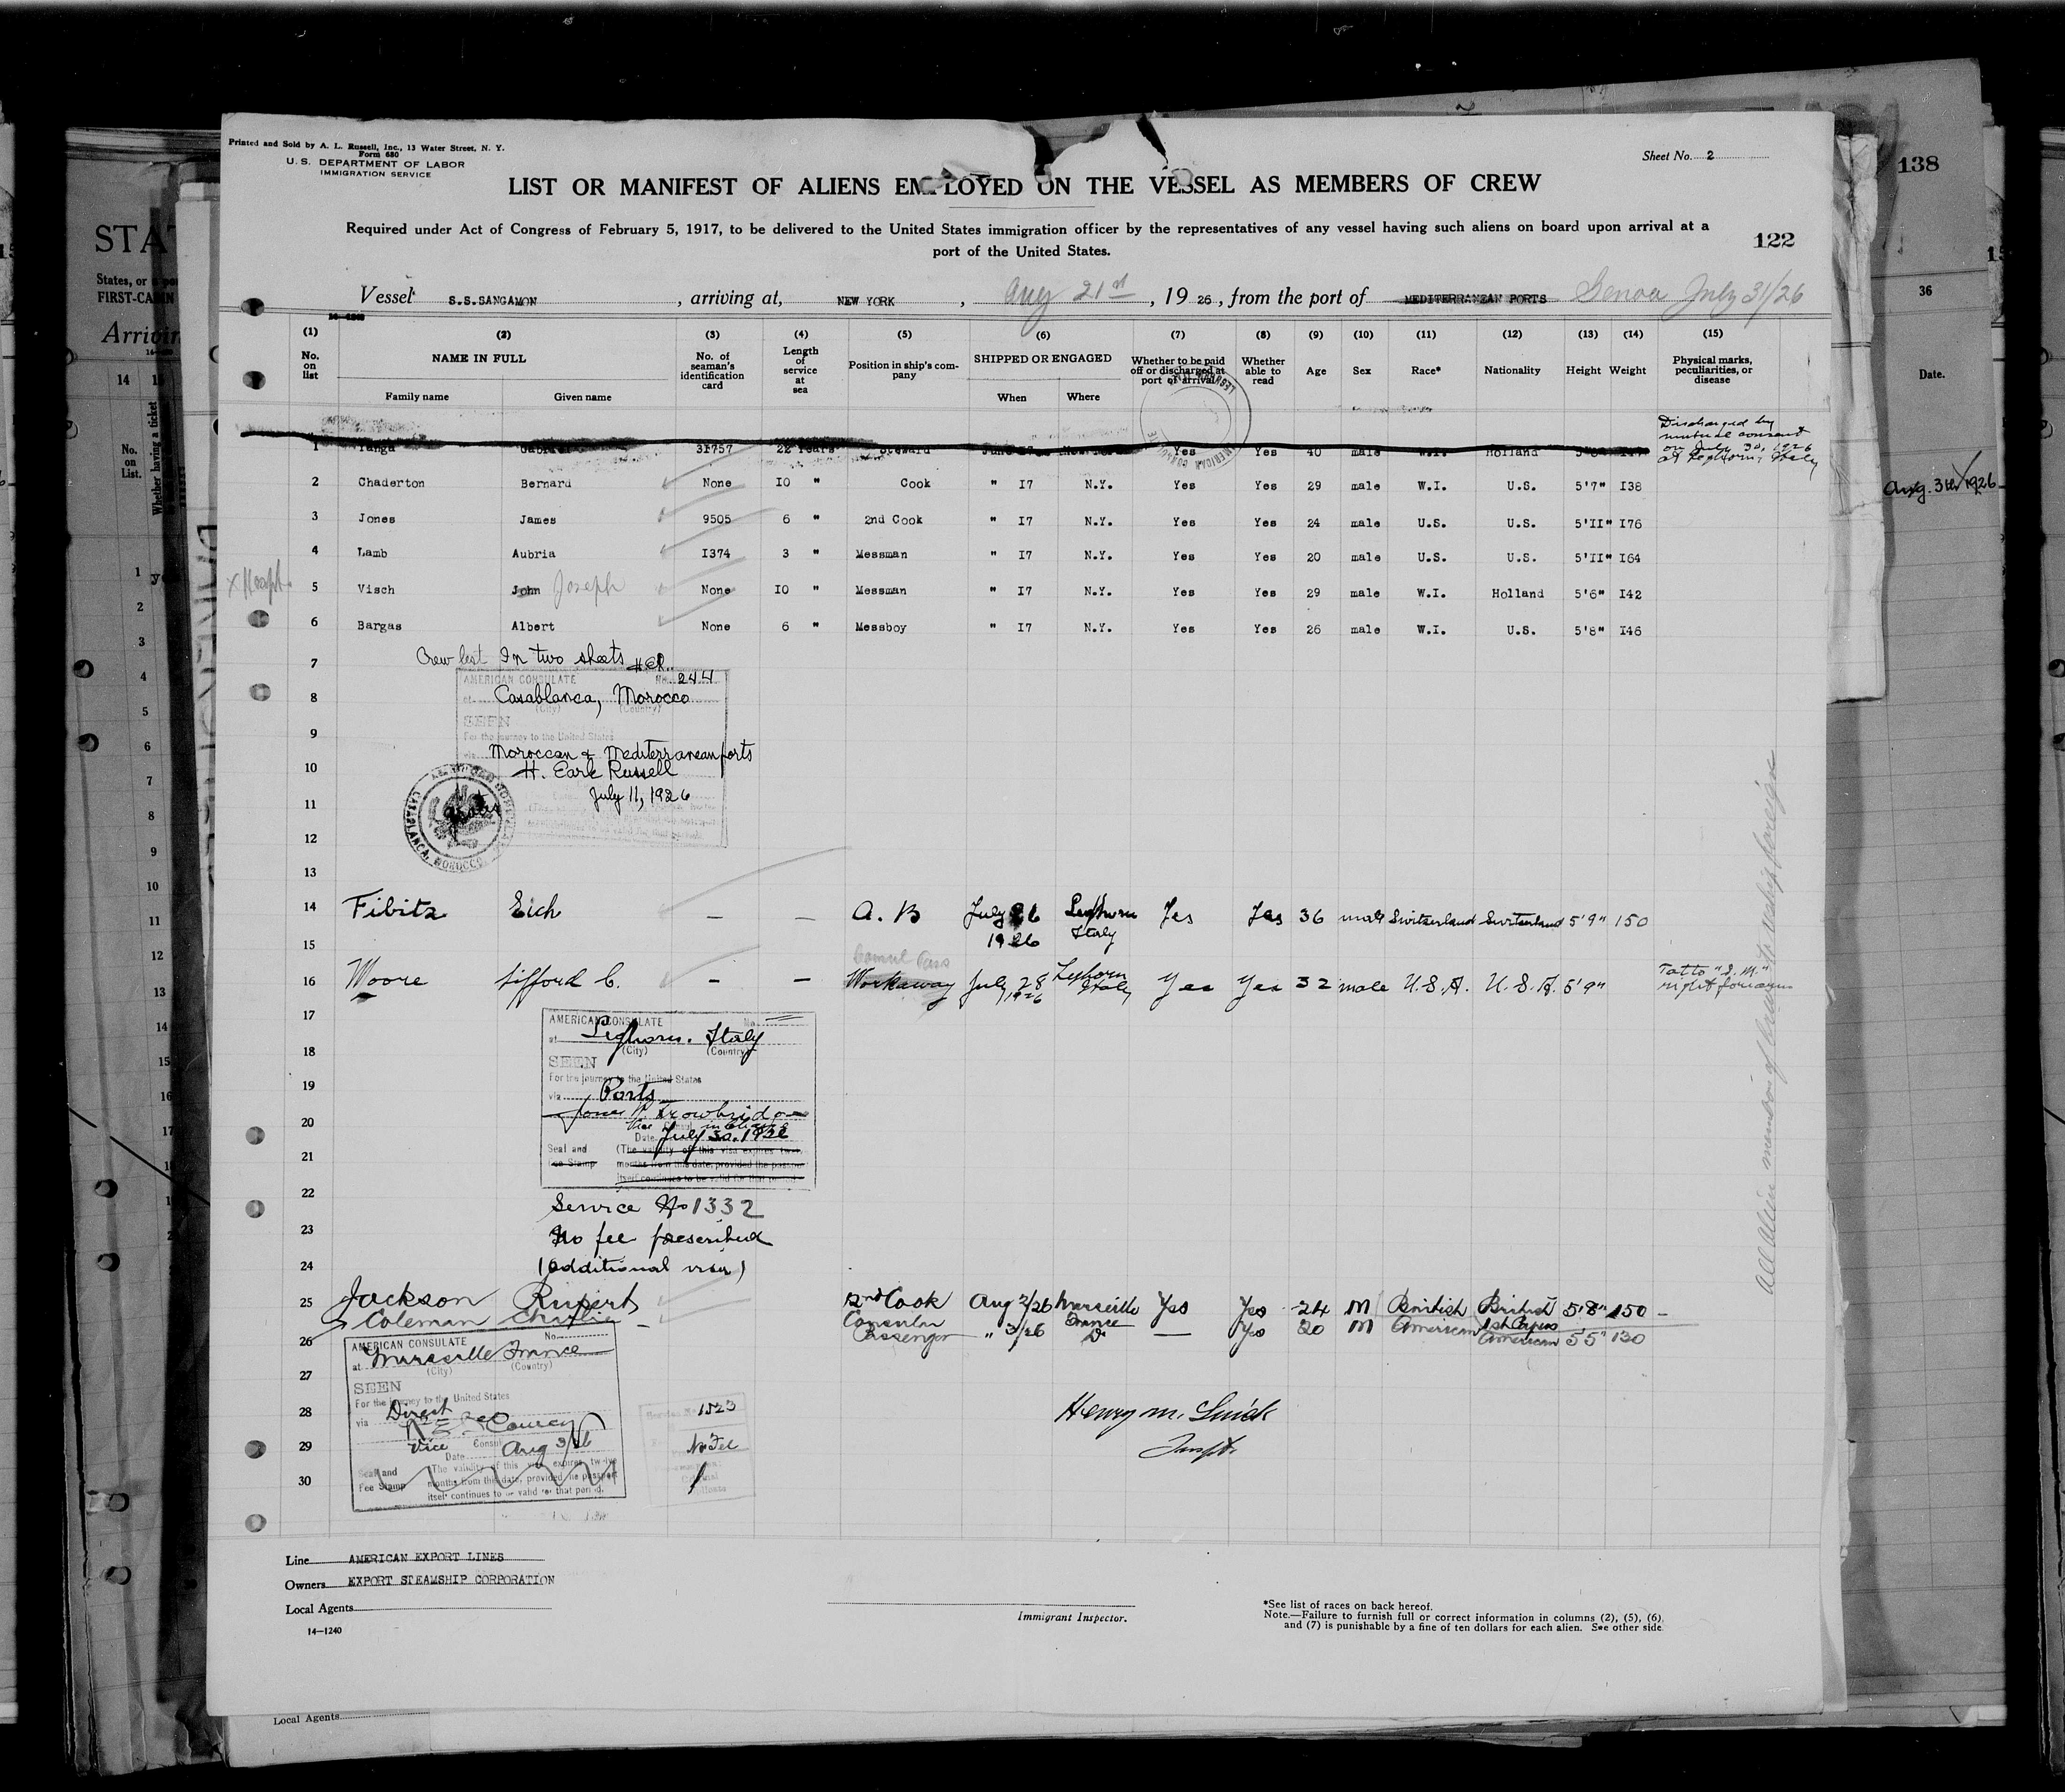 Printed and Sold by A. L. Russell, Inc., 13 Water Street, N. Y.
Form 680
U. S. DEPARTMENT OF LABOR
IMMIGRATION SERVICE
Sheet No. 2
138
LIST OR MANIFEST OF ALIENS EMPLOYED ON THE VESSEL AS MEMBERS OF CREW
Required under Act of Congress of February 5, 1917, to be delivered to the United States immigration officer by the representatives of any vessel having such aliens on board upon arrival at a
port of the United States.
122
Vessel S.S.SANGAMON, arriving at, NEW YORK, Aug 21st, 1926, from the port of MEDITERRANEAN PORTS Genoa July 31/26
(1) (2) (3) (4) (5) (6) (7) (8) (9) (10) (11) (12) (13) (14) (15)
No. on list
NAME IN FULL
Family name Given name
No. of seaman's identification card
Length of service at sea
Position in ship's company
SHIPPED OR ENGAGED
When Where
Whether to be paid off or discharged at port of arrival
Whether able to read
Age
Sex
Race*
Nationality
Height
Weight
Physical marks, peculiarities, or disease
1 Yanga Gabriel 31757 22 Years Steward Yes Yes 40 male W.I. Holland
Discharged by
mutual consent
on July 30, 1926
at Leghorn, Italy
2 Chaderton Bernard None I0 " Cook " I7 N.Y. Yes Yes 29 male W.I. U.S. 5'7" I38
3 Jones James 9505 6 " 2nd Cook " I7 N.Y. Yes Yes 24 male U.S. U.S. 5'II" I76
4 Lamb Aubria I374 3 " Messman " I7 N.Y. Yes Yes 20 male U.S. U.S. 5'II" I64
5 Visch John Joseph None I0 " Messman " I7 N.Y. Yes Yes 29 male W.I. Holland 5'6" I42
6 Bargas Albert None 6 " Messboy " I7 N.Y. Yes Yes 26 male W.I. U.S. 5'8" I46
7 Crew list In two sheets
AMERICAN CONSULATE No. 244
8 at Casablanca, Morocco
(City) (Country)
9 SEEN
For the journey to the United States
10 via Moroccan & Mediterranean ports
H. Earle Russell
11 July 11, 1926
CASABLANCA, MOROCCO
12
13
14 Fibitz Eich — — A. B July 26 Leghorn Yes Yes 36 male Switzerland Switzerland 5'9" 150
15 1926 Italy
Consul Pass
16 Moore Sifford C. — — Workaway July 28 1926 Leghorn Italy Yes Yes 32 male U.S.A. U.S.A. 5'9"
right forearm
17 AMERICAN CONSULATE No.
at Leghorn. Italy
18 (City) (Country)
SEEN
19 For the journey to the United States
via Ports
20
Date July 30, 1926
21 Seal and Fee Stamp
(The validity of this visa expires twelve
months from this date, provided the passport
itself continues to be valid for that period.
22 Service No 1332
23 No fee prescribed
24 (additional visa)
25 Jackson Rupert 2nd Cook Aug 2/26 Marseille France Yes Yes 24 M British British 5'8" 150 —
26 Coleman Charlie — Consular Passenger " 3/26 Do — Yes 20 M American American 5'5" 130
AMERICAN CONSULATE No.
at Marseille France
(City) (Country)
27
SEEN
For the journey to the United States
28 via Direct
1523
29 Vice Consul
Date Aug 3/26
No Fee
30 Seal and Fee Stamp
(The validity of this visa expires twelve
months from this date, provided the passport
itself continues to be valid for that period.
Henry M.
All Alien members of crew
Line AMERICAN EXPORT LINES
Owners EXPORT STEAMSHIP CORPORATION
Local Agents
14—1240
Immigrant Inspector.
*See list of races on back hereof.
Note.—Failure to furnish full or correct information in columns (2), (5), (6),
and (7) is punishable by a fine of ten dollars for each alien. See other side.
Local Agents
36
Date.
Aug. 3rd 1926
STAT
States, or a
FIRST-CABIN
Arrivin
14
No. on List.
Whether having a ticket